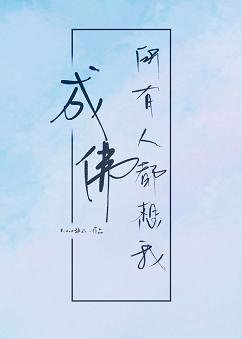 所有人都想我
成佛